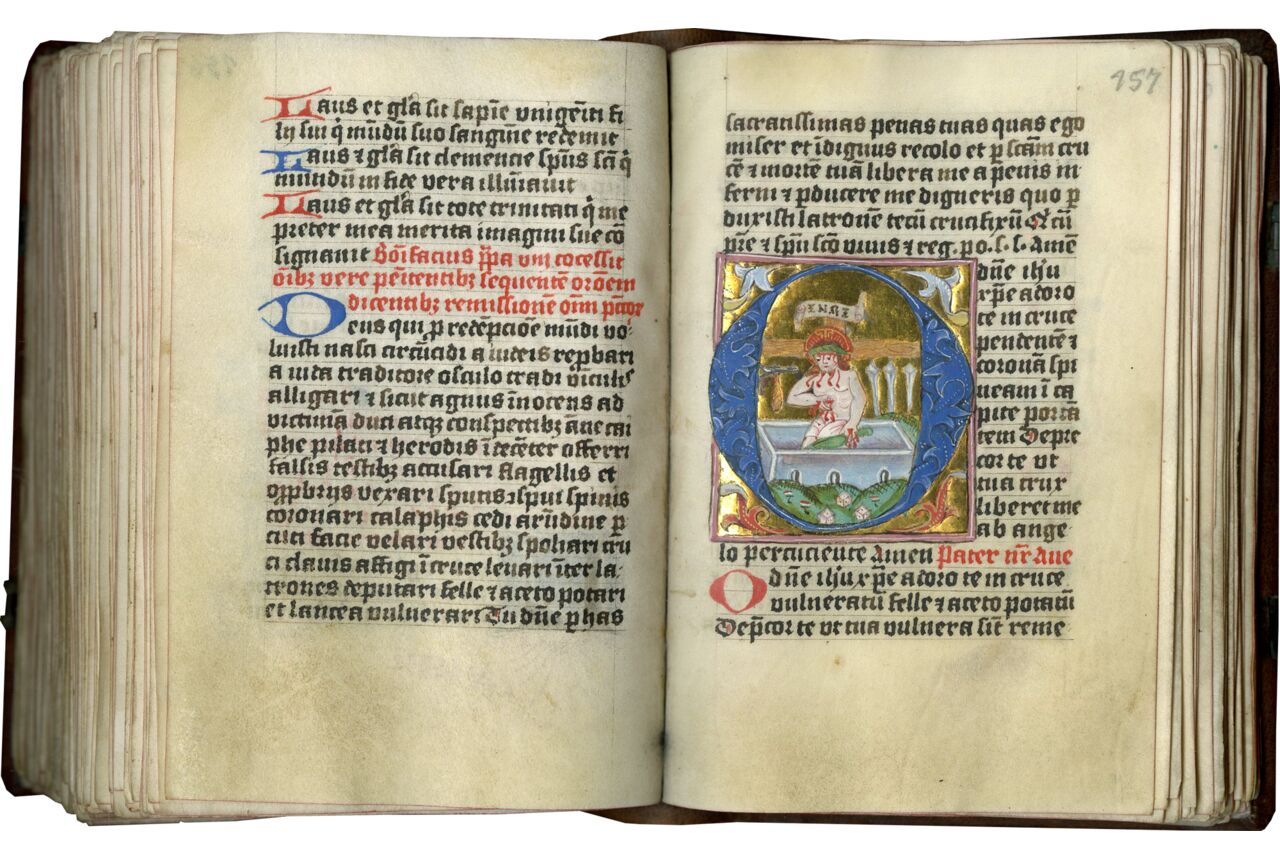 Laus et gl̄a sit sapīe vnigeīti fi
lij sui q̇ mūdū suo sanguine redemit
Laus ⁊ gl̄a sit clemencie sp̄us sc̄i q̇
mundū in fide vera illūīauit
Laus et gl̄a sit tote trinitati q̇ me
preter mea merita imagini sue cō
signauit Bōifacius p̄pa viij cōcessit
oībꝫ vere pēitentibꝫ sequentē orōem
dicentibꝫ remissionē oīm pc̄cor
Deus qui ꝓ redēpcōe mūdi vo-
luisti nasci circūcidi a iudeis rep̱bari
a iuda traditore osculo tradi vīculis
alligari ⁊ sicut agnus īnocens ad
victimā duci atqꝫ conspectibꝫ āne cai
phe pilati ⁊ herodis īdecēter offerri
falsis testibꝫ accusari flagellis et
opp̱brijs vexari sputis ɔspui spinis
coronari calaphis cedi arūdine ꝑ
cuti facie velari vestibꝫ spoliari cru
ci clauis affigi ī cruce leuari īter la-
trones deputari felle ⁊ aceto potari
et lancea vulnerari Tu dn̄e ꝑ has
157
sacratissimas penas tuas quas ego
miser et īdignus recolo et ꝑ sc̄am cru
cē ⁊ mortē tuā libera me a penis in
ferni ⁊ ꝑducere me digneris quo ꝑ
duxisti latronē tecū crucifixū Q̇ cū
pr̄e ⁊ sp̄u sc̄o viuis ⁊ reg. p o. s. s. Amē
INRI
O dn̄e ihu
xp̄e adoro
te in cruce
pendentē ⁊
coronā spi
neam ī ca
pite portā
tem Depre
cor te vt
tua crux
liberet me
ab ange
lo percuciente Amen Pater nr̄ Aue
O dn̄e ihu xp̄e adoro te in cruce
vulneratū felle ⁊ aceto potatū
Dep̄cor te vt tua vulnera sīt reme